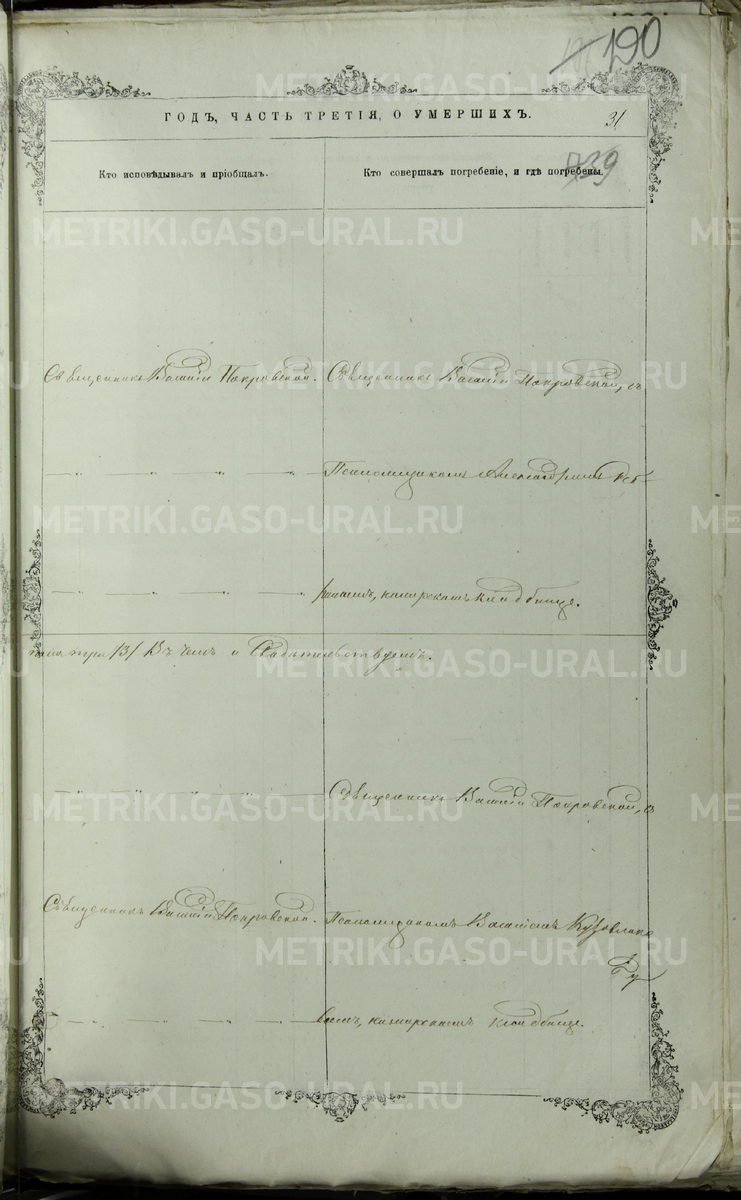 190
ГОДЪ, ЧАСТЬ ТРЕТІЯ, О УМЕРШИХЪ.
31
739
Кто исповѣдывалъ и пріобщалъ.
Кто совершалъ погребеніе, и гдѣ погребены.
Священникъ Василій Покровской.
Священникъ Василій Покровской, съ
Псаломщикомъ Александромъ
на мірскомъ кладбище.
три /3/ Въ чемъ и Свидѣтельствуемъ.
Священникъ Василій Покровской, съ
Священникъ Василій Покровской.
Псаломщикомъ Василіемъ
вымъ, на мирскомъ кладбище.
METRIKI.GASO-URAL.RU